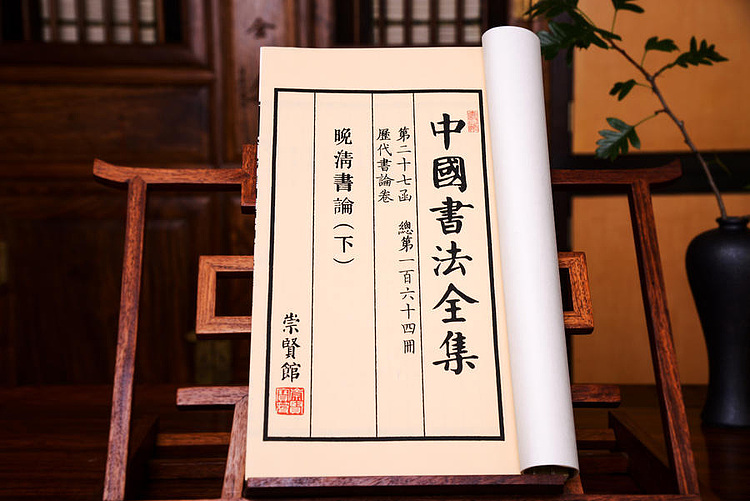 中國書法全集
第二十七函 總第一百六十四冊
歷代書論卷
晚清書論（下）
崇賢館